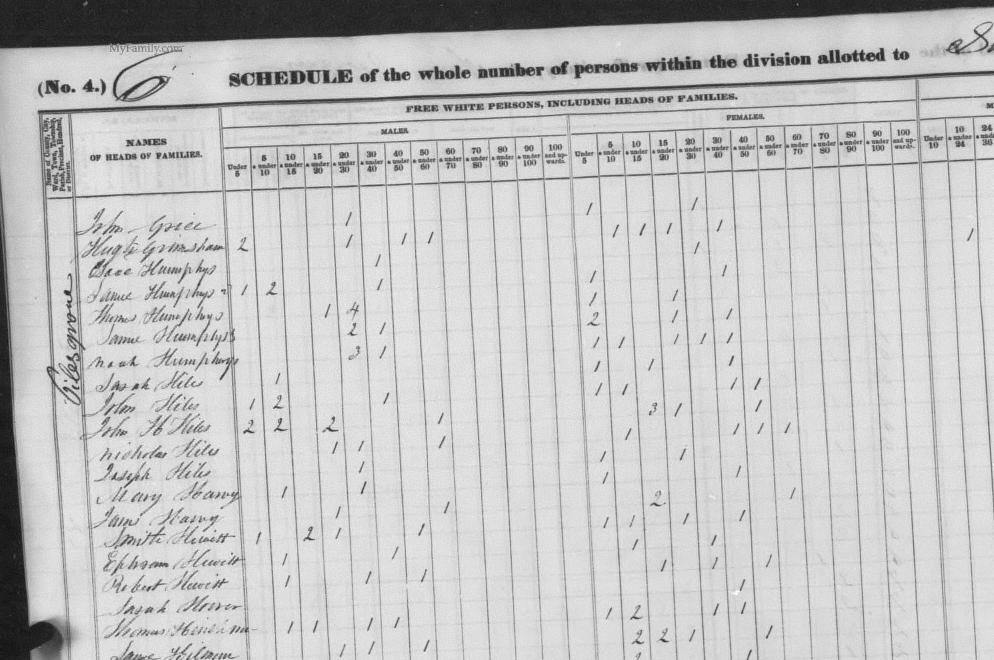 MyFamily.com
(No. 4.) 6 SCHEDULE of the whole number of persons within the division allotted to
FREE WHITE PERSONS, INCLUDING HEADS OF FAMILIES.
NAMES OF HEADS OF FAMILIES.
MALES. FEMALES.
Under 5 5 & under 10 10 & under 15 15 & under 20 20 & under 30 30 & under 40 40 & under 50 50 & under 60 60 & under 70 70 & under 80 80 & under 90 90 & under 100 100 and upwards. Under 5 5 & under 10 10 & under 15 15 & under 20 20 & under 30 30 & under 40 40 & under 50 50 & under 60 60 & under 70 70 & under 80 80 & under 90 90 & under 100 100 and upwards. Under 10 10 & under 24 24 & under 36
Pilesgrove
John Grice 1 1 1
Hugh Grimshaw 2 1 1 1 1 1 1 1 1
Isaac Humphys 1 1
Humphys 1 2 1 1 1
Thomas Humphys 1 4 1 1
Humphys 2 1 2 1 1
Noah Humphrys 3 1 1 1 1 1 1
Sarah Hiles 1 1 1 1
John Hiles 1 2 1 1 1 1 1
John H Hiles 2 2 2 1 3 1 1
Nicholas Hiles 1 1 1 1 1 1 1
Joseph Hiles 1 1 1
Mary Harvy 1 1 1 1
Harvy 1 1 2 1
Smith Hewitt 1 2 1 1 1 1 1 1
Ephraim Hewitt 1 1 1 1
Robert Hewitt 1 1 1 1 1 1
Sarah 1
Thomas 1 1 1 1 1 2 1 1
1 1 1 2 2 1 1